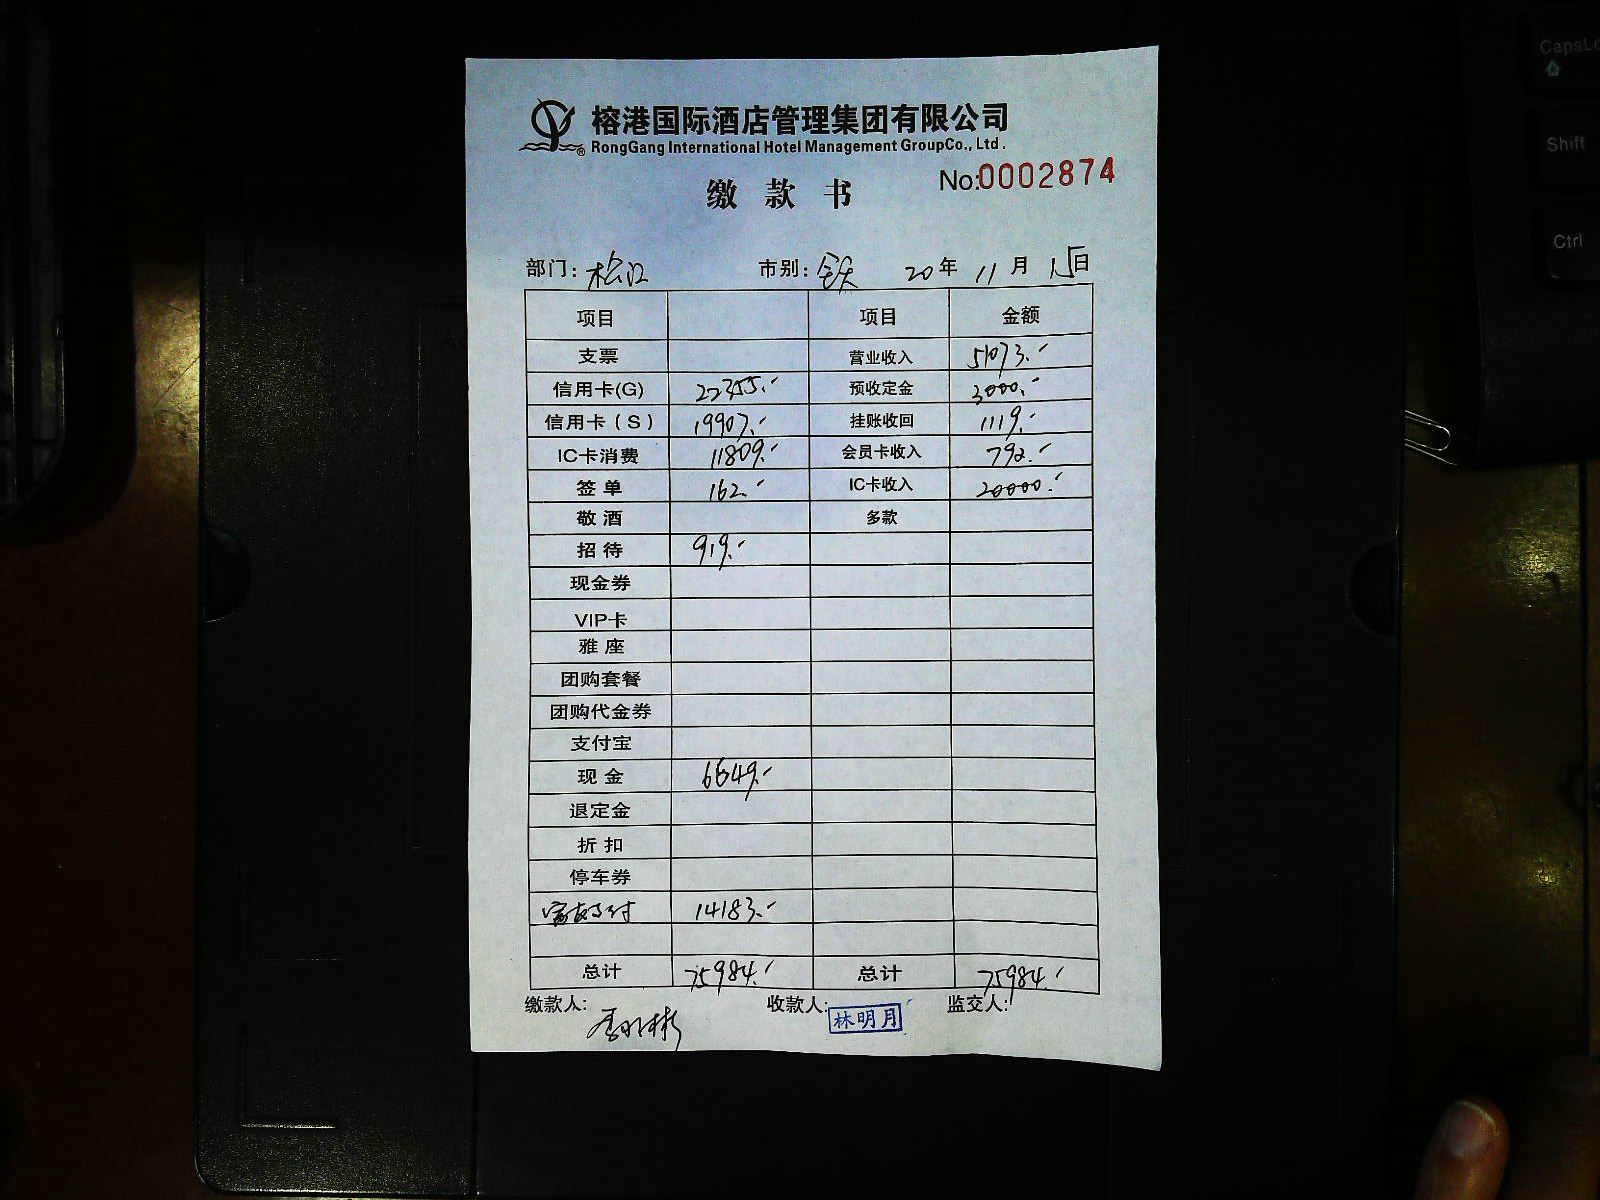 榕港国际酒店管理集团有限公司
RongGang International Hotel Management GroupCo., Ltd.
®
No:0002874
缴 款 书
部门: 松江 市别: 全天 20年 11月 15日
项目 项目 金额
支票 营业收入 51073.-
信用卡(G) 22355.- 预收定金 3000.-
信用卡（S） 19907.- 挂账收回 1119.-
IC卡消费 11809.- 会员卡收入 792.-
签 单 162.- IC卡收入 20000.-
敬 酒 多款
招 待 919.-
现金券
VIP卡
雅 座
团购套餐
团购代金券
支付宝
现 金 6649.-
退定金
折 扣
停车券
14183.-
总计 75984.- 总计 75984.-
缴款人: 收款人: 林明月 监交人:
CapsLo
Shift
Ctrl